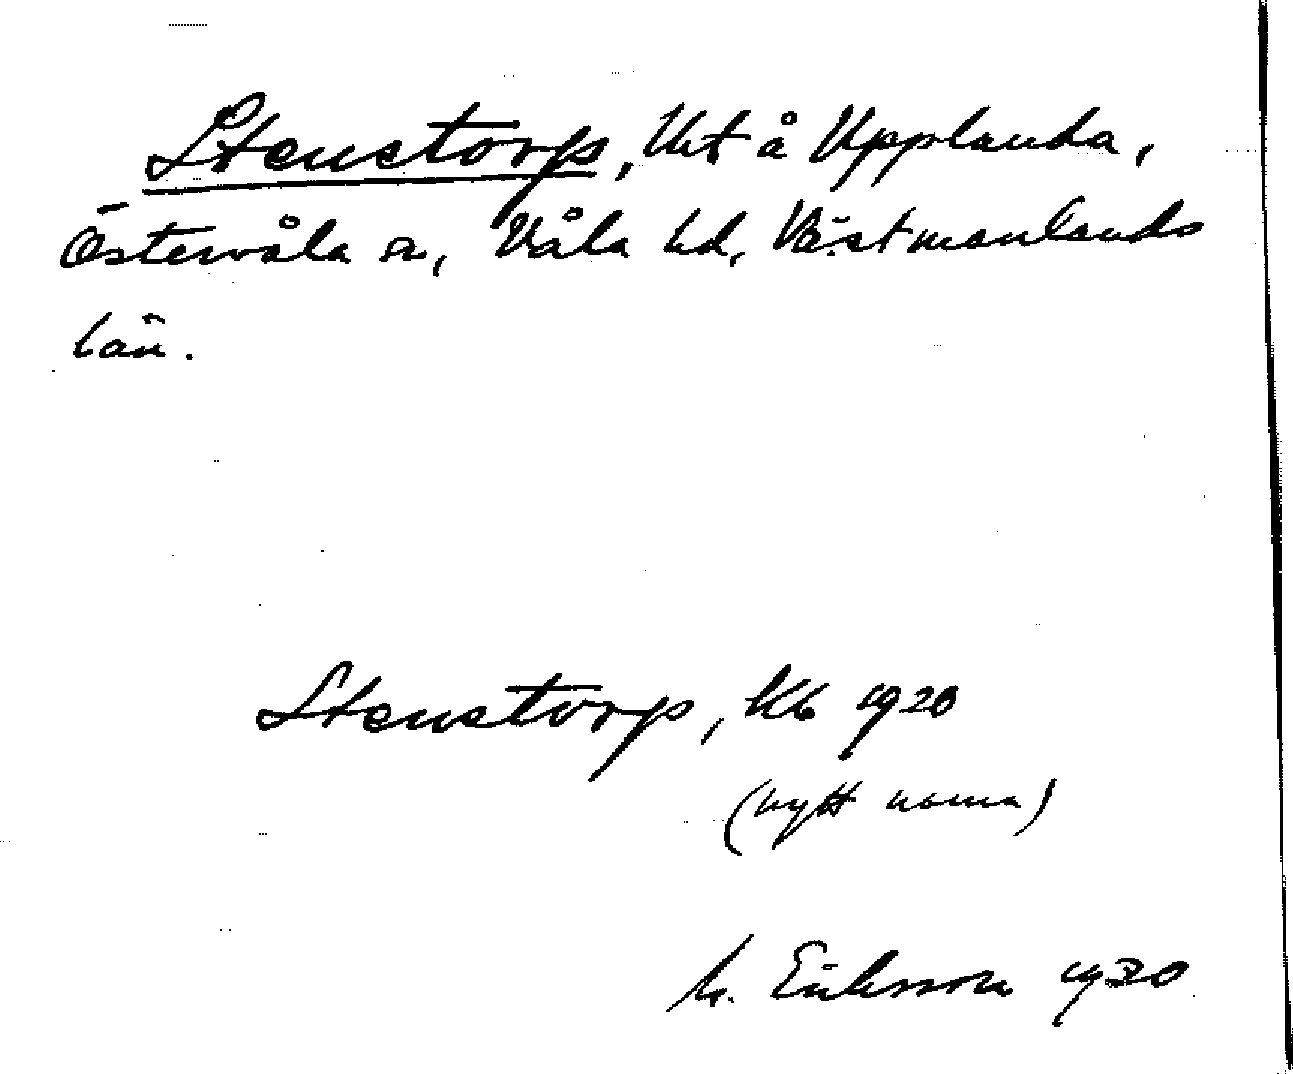 Stenstorp, Uht å Upplanda,
Östervåla sn, Våla hd, Västmanlands
län.
Stenstorp, Kb 1920
(nytt namn)
M. Eriksson 1930